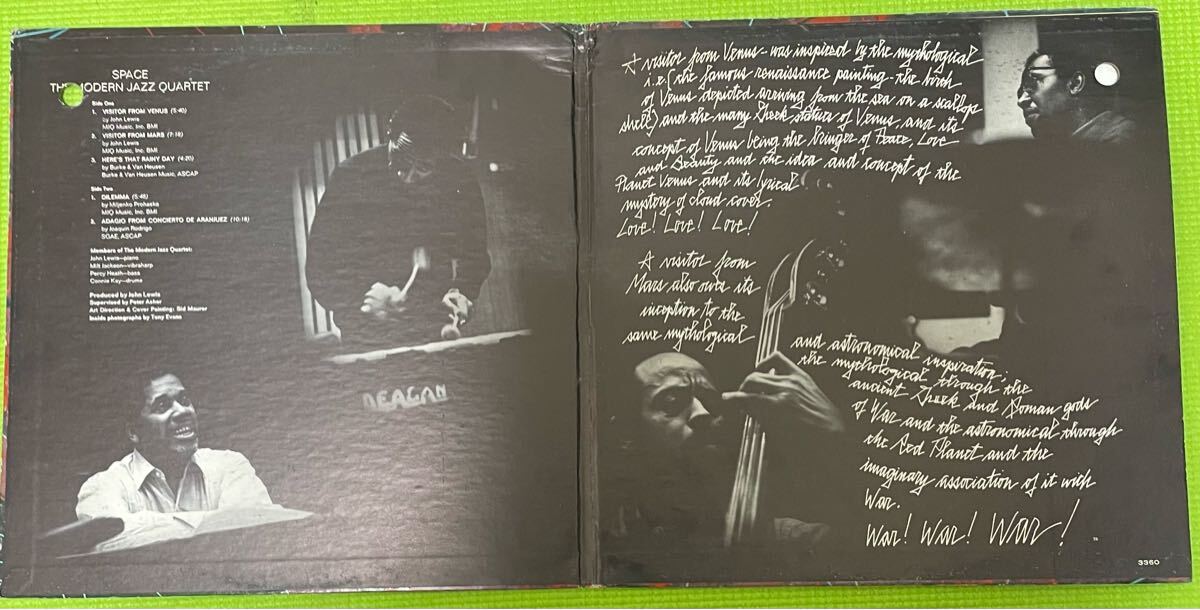 SPACE
THE MODERN JAZZ QUARTET
Side One
1. VISITOR FROM VENUS (5:40)
by John Lewis
MJQ Music, Inc. BMI
2. VISITOR FROM MARS (7:18)
by John Lewis
MJQ Music, Inc. BMI
3. HERE'S THAT RAINY DAY (4:20)
by Burke & Van Heusen
Burke & Van Heusen Music, ASCAP
Side Two
1. DILEMMA (5:48)
by Miljenko Prohaska
MJQ Music, Inc. BMI
2. ADAGIO FROM CONCIERTO DE ARANJUEZ (10:18)
by Joaquin Rodrigo
SGAE, ASCAP
Members of The Modern Jazz Quartet:
John Lewis—piano
Milt Jackson—vibraharp
Percy Heath—bass
Connie Kay—drums
Produced by John Lewis
Supervised by Peter Asher
Art Direction & Cover Painting: Sid Maurer
Inside photographs by Tony Evans
DEAGAN
A visitor from Venus - was inspired by the mythological
i.e. (the famous renaissance painting - the birth
of Venus depicted arriving from the sea on a scallops
shell) and the many Greek statues of Venus, and its
concept of Venus being the bringer of Peace, Love
and Beauty and the idea and concept of the
Planet Venus and its lyrical
mystery of cloud cover.
Love! Love! Love!
A visitor from
Mars also owes its
inception to the
same mythological
and astronomical inspiration;
the mythological through the
ancient Greek and Roman gods
of War and the astronomical through
the Red Planet and the
imaginary association of it with
War.
War! War! War!
3360